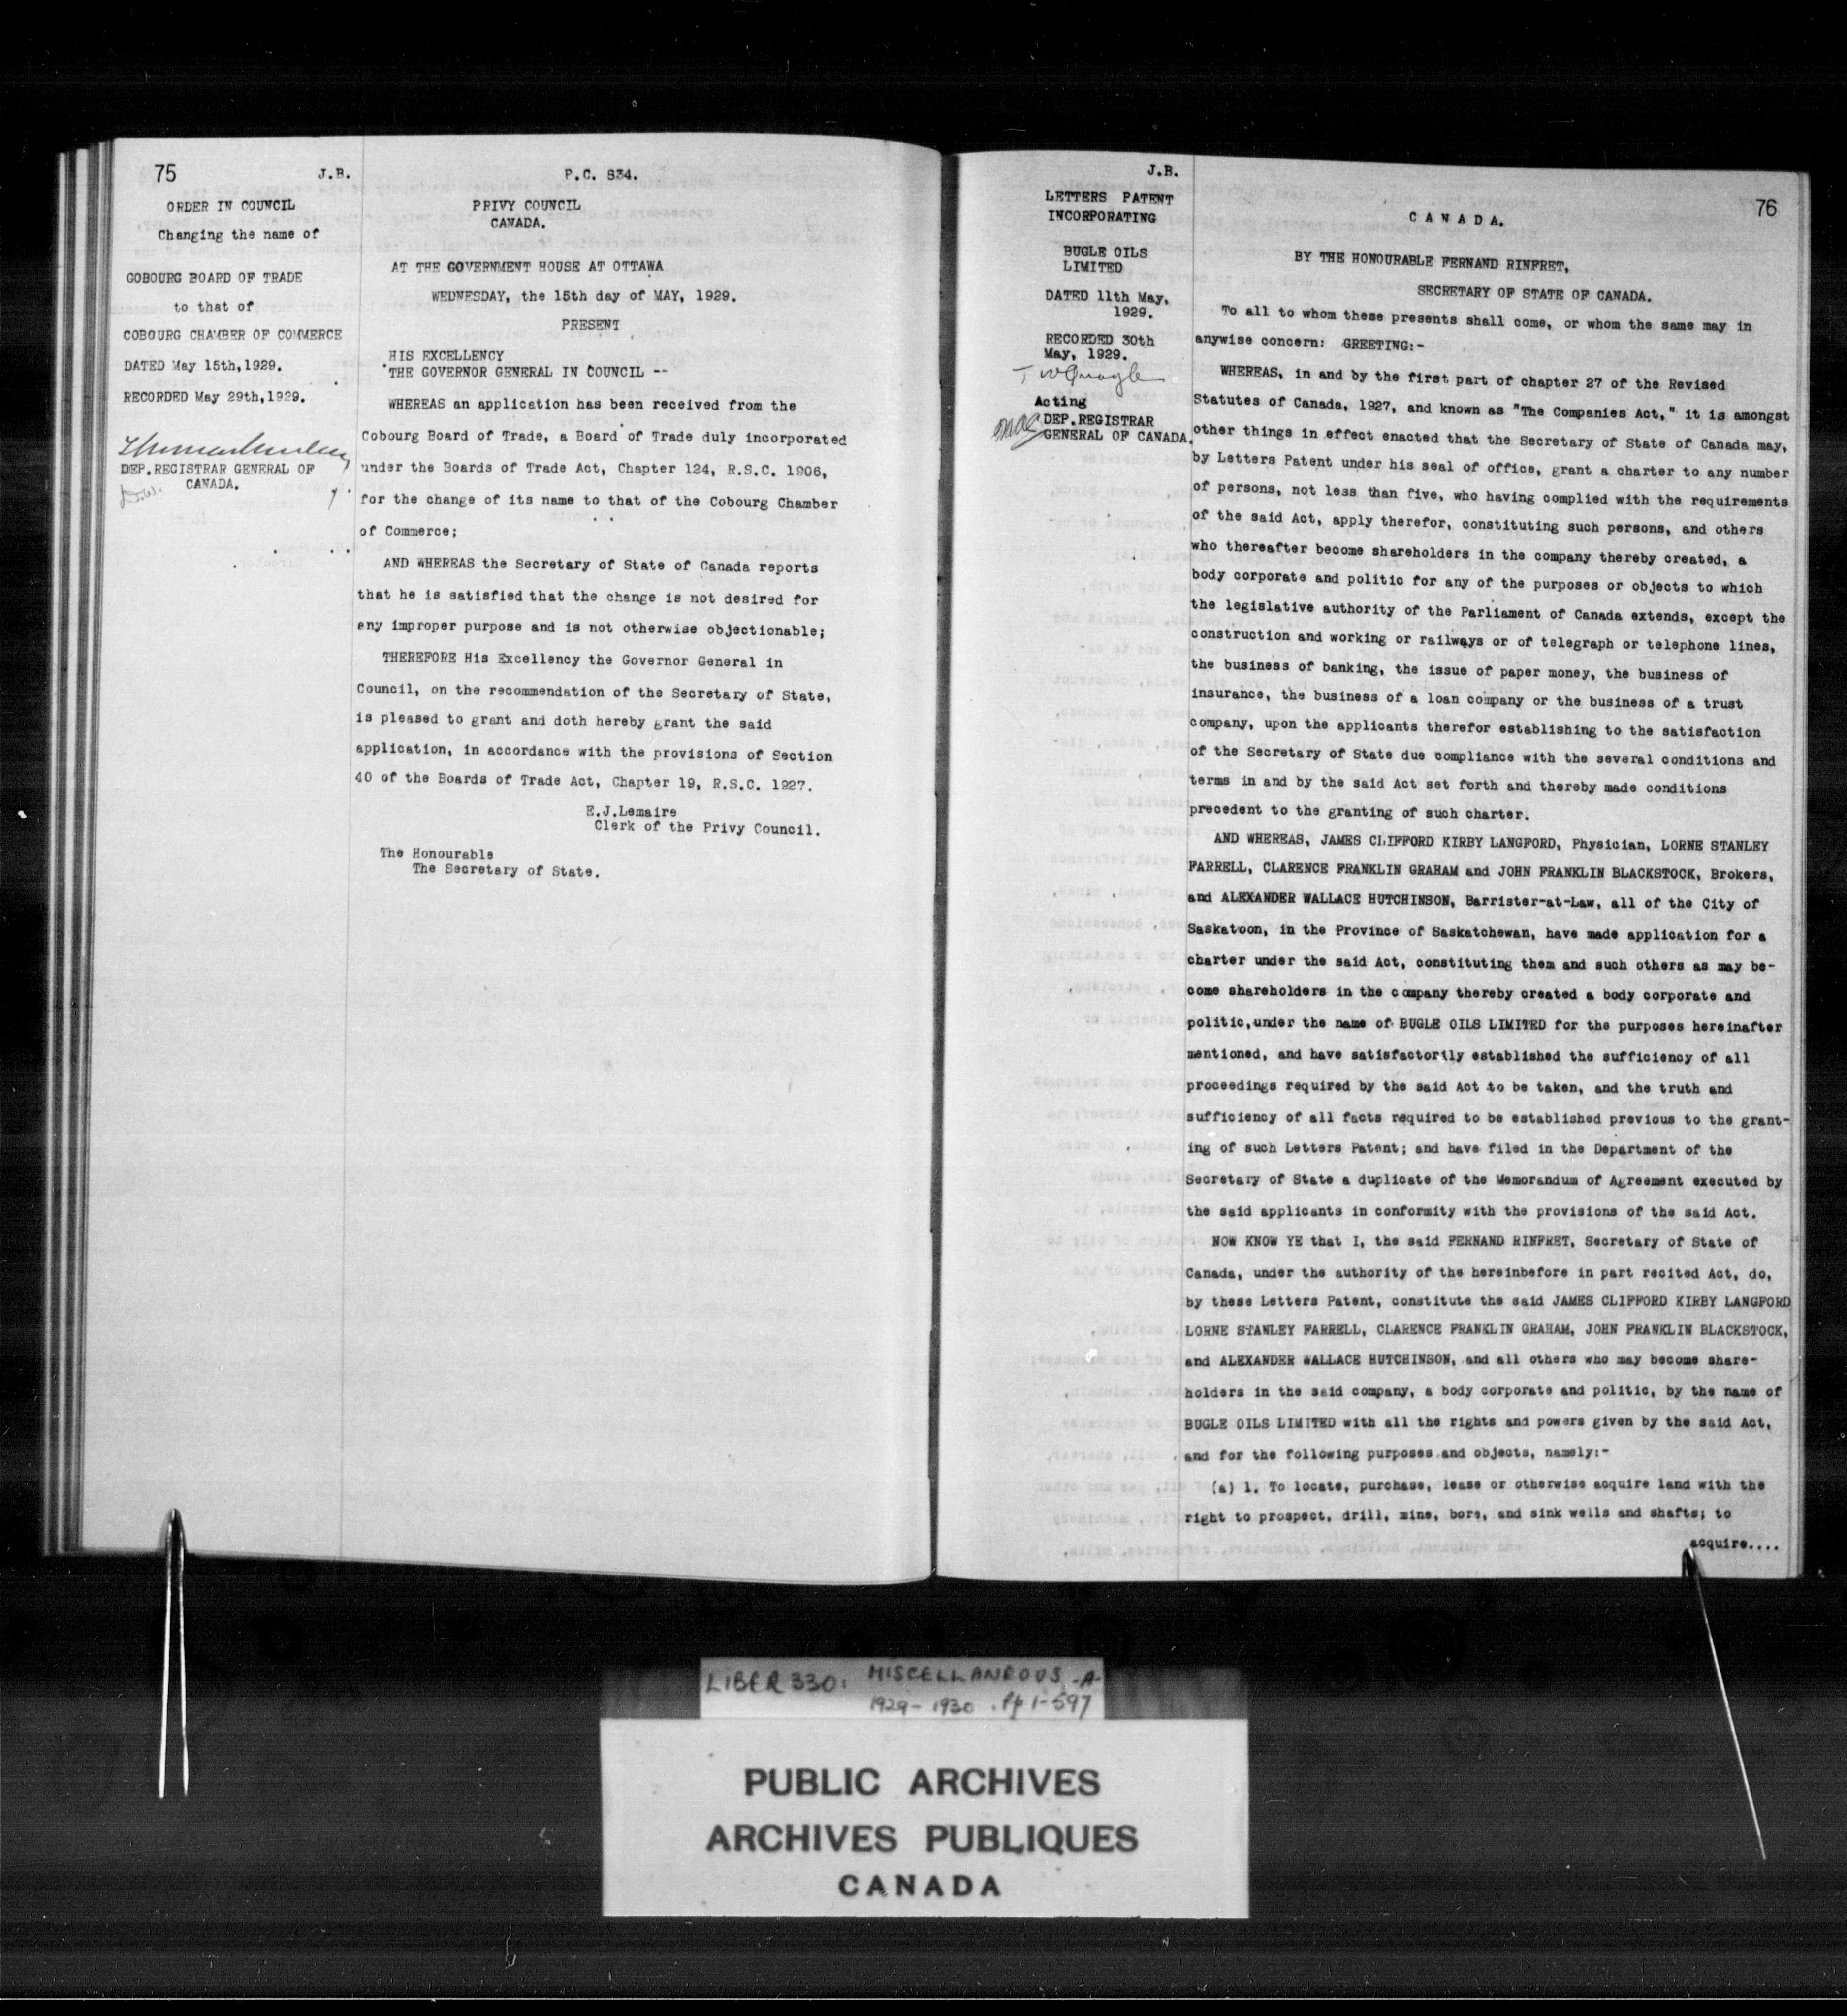 75
J.B.
ORDER IN COUNCIL
Changing the name of
GOBOURG BOARD OF TRADE
to that of
COBOURG CHAMBER OF COMMERCE
DATED May 15th,1929.
RECORDED May 29th,1929.
DEP.REGISTRAR GENERAL OF
CANADA.
P.C. 834.
PRIVY COUNCIL
CANADA.
AT THE GOVERNMENT HOUSE AT OTTAWA
WEDNESDAY, the 15th day of MAY, 1929.
PRESENT
HIS EXCELLENCY
THE GOVERNOR GENERAL IN COUNCIL --
WHEREAS an application has been received from the
Cobourg Board of Trade, a Board of Trade duly incorporated
under the Boards of Trade Act, Chapter 124, R.S.C. 1906,
for the change of its name to that of the Cobourg Chamber
of Commerce;
AND WHEREAS the Secretary of State of Canada reports
that he is satisfied that the change is not desired for
any improper purpose and is not otherwise objectionable;
THEREFORE His Excellency the Governor General in
Council, on the recommendation of the Secretary of State,
is pleased to grant and doth hereby grant the said
application, in accordance with the provisions of Section
40 of the Boards of Trade Act, Chapter 19, R.S.C. 1927.
E.J.Lemaire
Clerk of the Privy Council.
The Honourable
The Secretary of State.
J.B.
LETTERS PATENT
INCORPORATING
BUGLE OILS
LIMITED
DATED 11th May,
1929.
RECORDED 30th
May, 1929.
Acting
DEP.REGISTRAR
GENERAL OF CANADA.
76
C A N A D A.
BY THE HONOURABLE FERNAND RINFRET,
SECRETARY OF STATE OF CANADA.
To all to whom these presents shall come, or whom the same may in
anywise concern: GREETING:-
WHEREAS, in and by the first part of chapter 27 of the Revised
Statutes of Canada, 1927, and known as "The Companies Act," it is amongst
other things in effect enacted that the Secretary of State of Canada may,
by Letters Patent under his seal of office, grant a charter to any number
of persons, not less than five, who having complied with the requirements
of the said Act, apply therefor, constituting such persons, and others
who thereafter become shareholders in the company thereby created, a
body corporate and politic for any of the purposes or objects to which
the legislative authority of the Parliament of Canada extends, except the
construction and working or railways or of telegraph or telephone lines,
the business of banking, the issue of paper money, the business of
insurance, the business of a loan company or the business of a trust
company, upon the applicants therefor establishing to the satisfaction
of the Secretary of State due compliance with the several conditions and
terms in and by the said Act set forth and thereby made conditions
precedent to the granting of such charter.
AND WHEREAS, JAMES CLIFFORD KIRBY LANGFORD, Physician, LORNE STANLEY
FARRELL, CLARENCE FRANKLIN GRAHAM and JOHN FRANKLIN BLACKSTOCK, Brokers,
and ALEXANDER WALLACE HUTCHINSON, Barrister-at-Law, all of the City of
Saskatoon, in the Province of Saskatchewan, have made application for a
charter under the said Act, constituting them and such others as may be-
come shareholders in the company thereby created a body corporate and
politic,under the name of BUGLE OILS LIMITED for the purposes hereinafter
mentioned, and have satisfactorily established the sufficiency of all
proceedings required by the said Act to be taken, and the truth and
sufficiency of all facts required to be established previous to the grant-
ing of such Letters Patent; and have filed in the Department of the
Secretary of State a duplicate of the Memorandum of Agreement executed by
the said applicants in conformity with the provisions of the said Act.
NOW KNOW YE that I, the said FERNAND RINFRET, Secretary of State of
Canada, under the authority of the hereinbefore in part recited Act, do,
by these Letters Patent, constitute the said JAMES CLIFFORD KIRBY LANGFORD
LORNE STANLEY FARRELL, CLARENCE FRANKLIN GRAHAM, JOHN FRANKLIN BLACKSTOCK,
and ALEXANDER WALLACE HUTCHINSON, and all others who may become share-
holders in the said company, a body corporate and politic, by the name of
BUGLE OILS LIMITED with all the rights and powers given by the said Act,
and for the following purposes and objects, namely:-
(a) 1. To locate, purchase, lease or otherwise acquire land with the
right to prospect, drill, mine, bore, and sink wells and shafts; to
acquire....
LIBER 330: MISCELLANEOUS -A-
1929-1930 . pp 1-597
PUBLIC ARCHIVES
ARCHIVES PUBLIQUES
CANADA